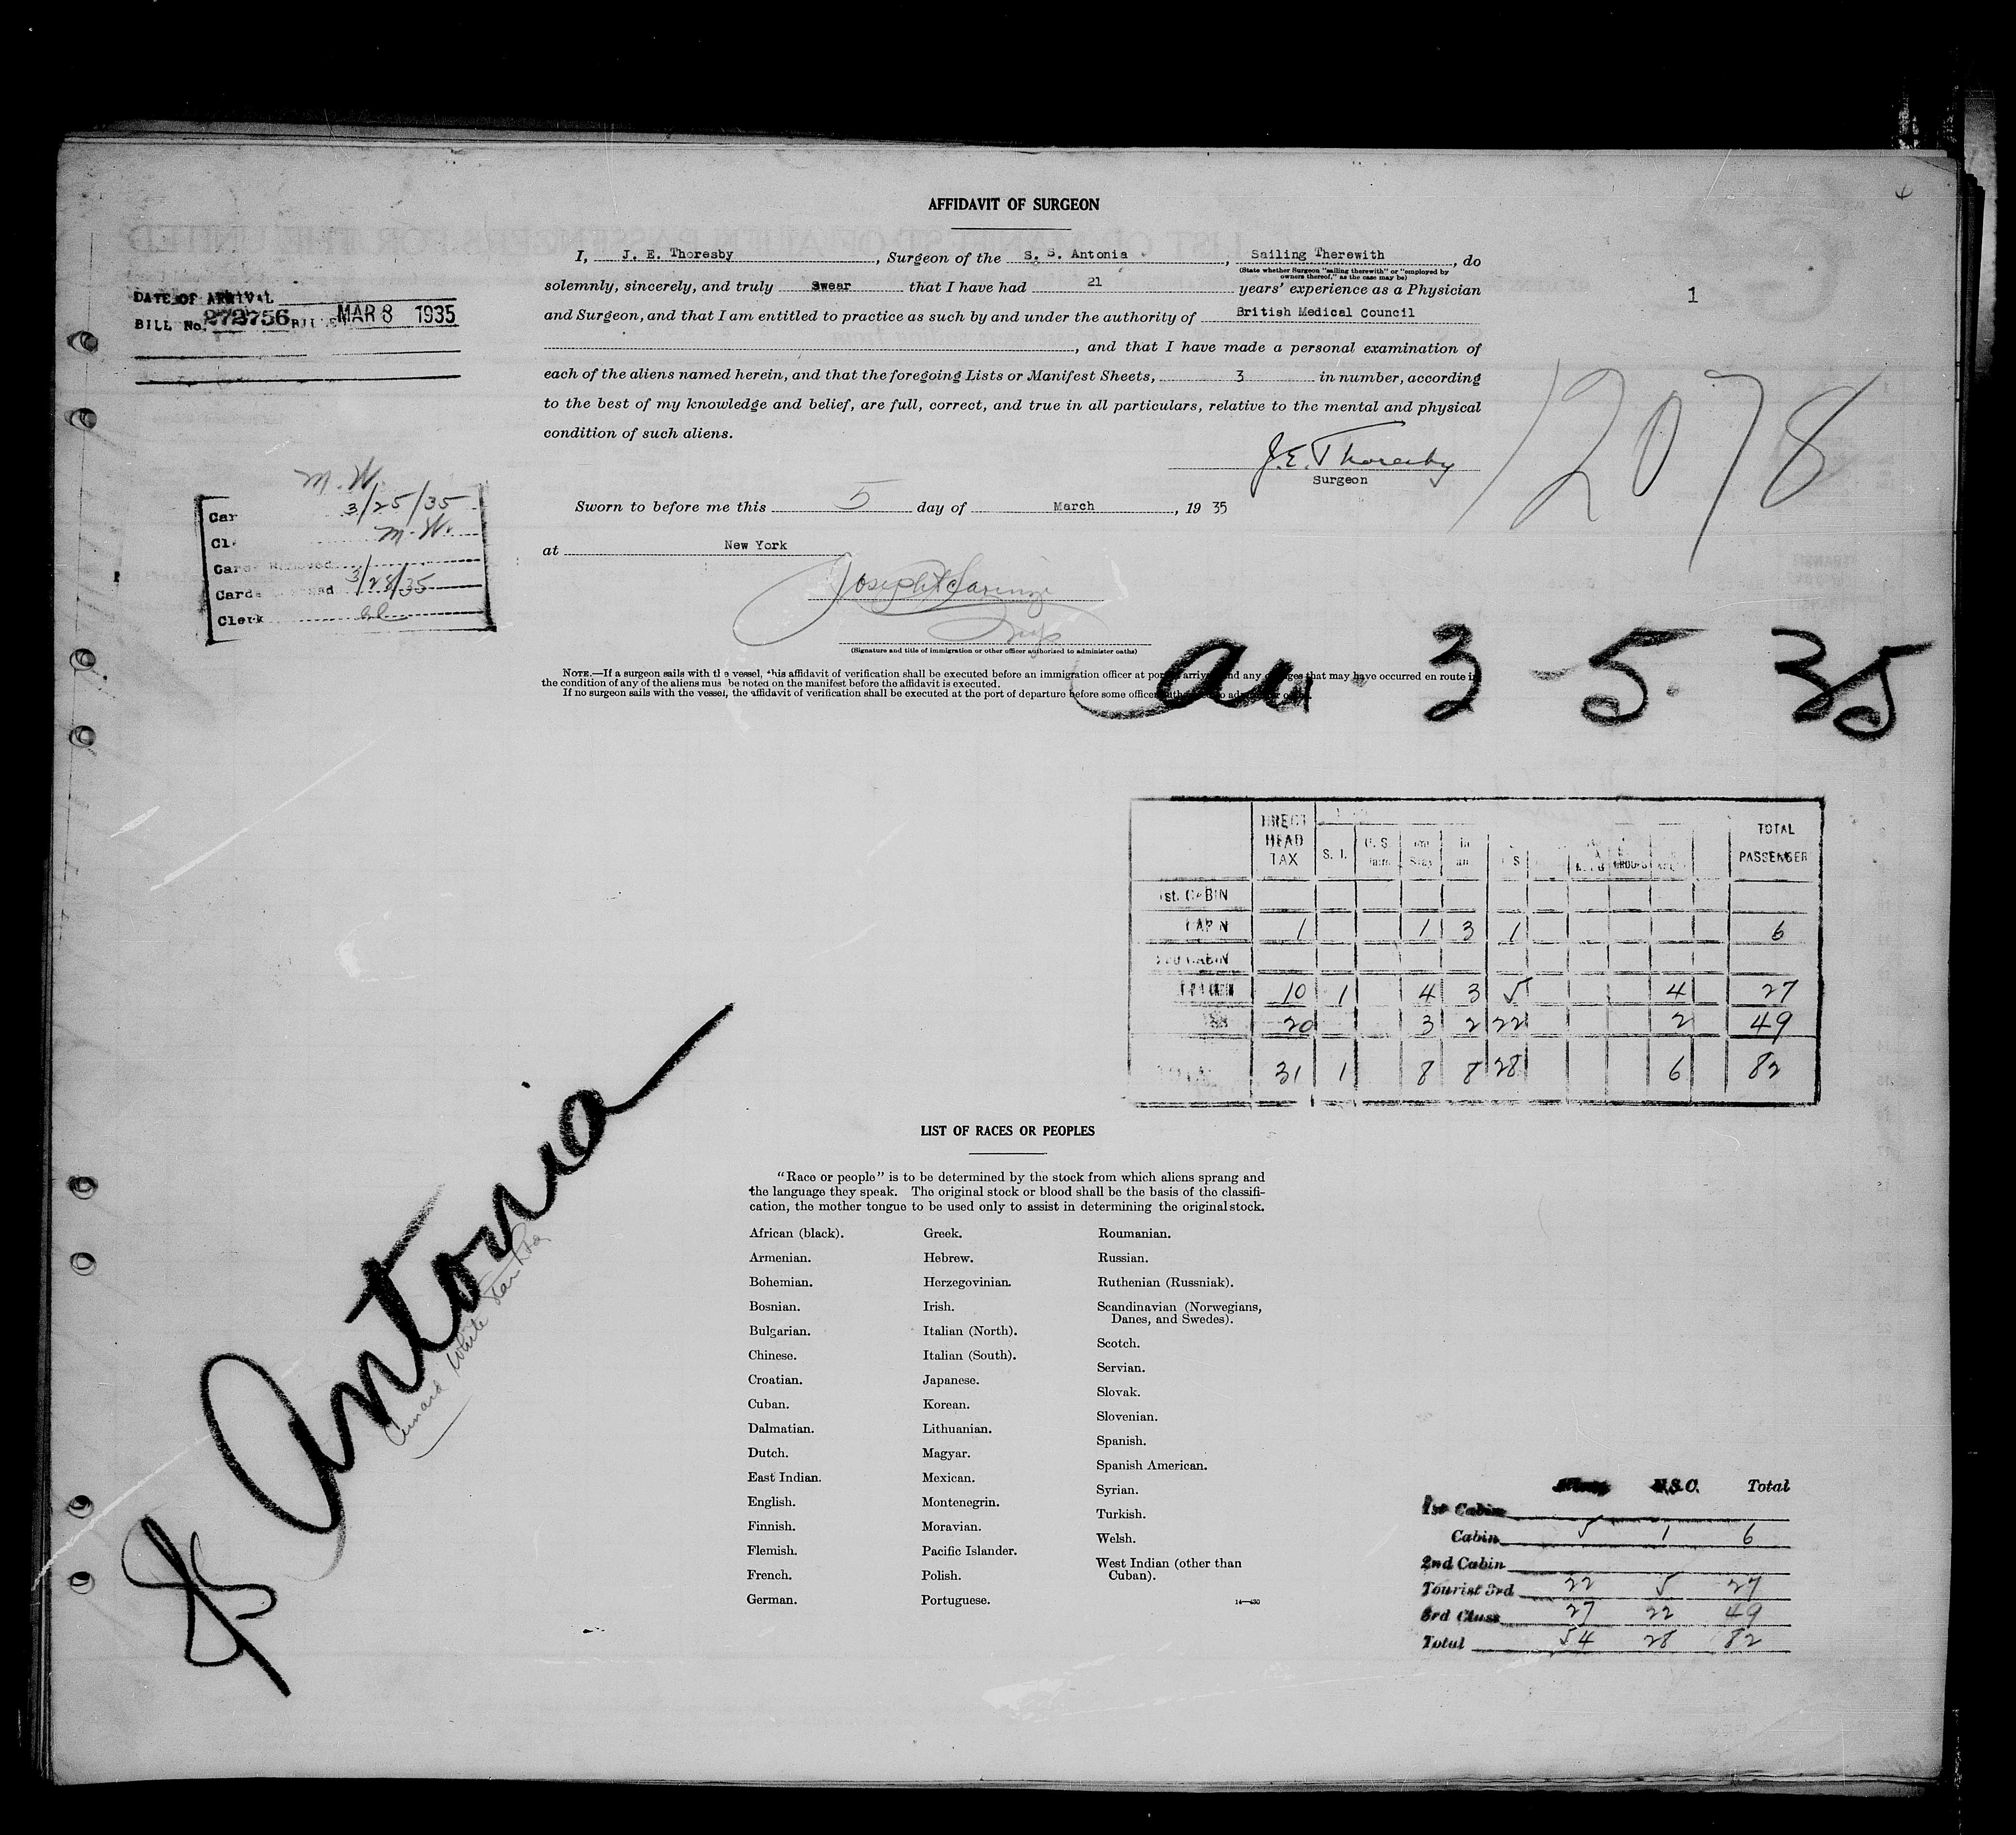 AFFIDAVIT OF SURGEON
I, J. E. Thoresby, Surgeon of the S. S. Antonia, Sailing Therewith, do
(State whether Surgeon "sailing therewith" or "employed by
owners thereof," as the case may be)
solemnly, sincerely, and truly swear that I have had 21 years' experience as a Physician
and Surgeon, and that I am entitled to practice as such by and under the authority of British Medical Council
, and that I have made a personal examination of
each of the aliens named herein, and that the foregoing Lists or Manifest Sheets, 3 in number, according
to the best of my knowledge and belief, are full, correct, and true in all particulars, relative to the mental and physical
condition of such aliens.
J.E. Thoresby
Surgeon
Sworn to before me this 5 day of March, 19 35
at New York
Joseph
Insp
(Signature and title of immigration or other officer authorized to administer oaths)
NOTE.—If a surgeon sails with the vessel, this affidavit of verification shall be executed before an immigration officer at port arriv and any changes that may have occurred en route in
the condition of any of the aliens mus be noted on the manifest before the affidavit is executed.
If no surgeon sails with the vessel, the affidavit of verification shall be executed at the port of departure before some officer
DATE OF ARRIVAL
BILL No. 272756 MAR 8 1935
1
12078
M.W.
Car 3/25/35
Cl. M.W.
Card Removed
Cards 3/28/35
Clerk
3 5 35
DIRECT HEAD TAX S. I. U. S. TOTAL PASSENGER
1st. CABIN
CABIN 1 1 3 1 6
2ND CABIN
10 1 4 3 5 4 27
20 3 2 22 2 49
TOTAL 31 1 8 8 28 6 82
SS Antonia
Cunard White Star
LIST OF RACES OR PEOPLES
"Race or people" is to be determined by the stock from which aliens sprang and
the language they speak. The original stock or blood shall be the basis of the classifi-
cation, the mother tongue to be used only to assist in determining the original stock.
African (black).
Armenian.
Bohemian.
Bosnian.
Bulgarian.
Chinese.
Croatian.
Cuban.
Dalmatian.
Dutch.
East Indian.
English.
Finnish.
Flemish.
French.
German.
Greek.
Hebrew.
Herzegovinian.
Irish.
Italian (North).
Italian (South).
Japanese.
Korean.
Lithuanian.
Magyar.
Mexican.
Montenegrin.
Moravian.
Pacific Islander.
Polish.
Portuguese.
Roumanian.
Russian.
Ruthenian (Russniak).
Scandinavian (Norwegians,
Danes, and Swedes).
Scotch.
Servian.
Slovak.
Slovenian.
Spanish.
Spanish American.
Syrian.
Turkish.
Welsh.
West Indian (other than
Cuban).
14—430
U.S.C. Total
1st Cabin
Cabin 5 1 6
2nd Cabin
Tourist 3rd 22 5 27
3rd Class 27 22 49
Total 54 28 82